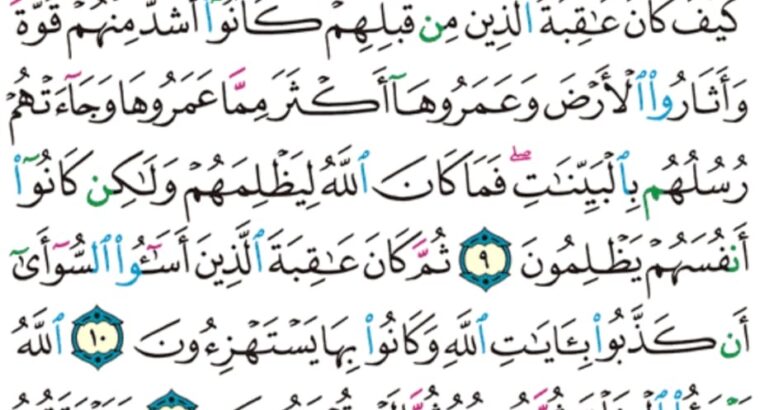 كَيۡفَ كَانَ عَٰقِبَةُ ٱلَّذِينَ مِن قَبۡلِهِمۡ كَانُوٓاْ أَشَدَّ مِنۡهُمۡ قُوَّةٗ
وَأَثَارُواْ ٱلۡأَرۡضَ وَعَمَرُوهَآ أَكۡثَرَ مِمَّا عَمَرُوهَا وَجَآءَتۡهُمۡ
رُسُلُهُم بِٱلۡبَيِّنَٰتِۖ فَمَا كَانَ ٱللَّهُ لِيَظۡلِمَهُمۡ وَلَٰكِن كَانُوٓاْ
أَنفُسَهُمۡ يَظۡلِمُونَ ٩ ثُمَّ كَانَ عَٰقِبَةَ ٱلَّذِينَ أَسَٰٓـُٔواْ ٱلسُّوٓأَىٰٓ
أَن كَذَّبُواْ بِـَٔايَٰتِ ٱللَّهِ وَكَانُواْ بِهَا يَسۡتَهۡزِءُونَ ١٠ ٱللَّهُ